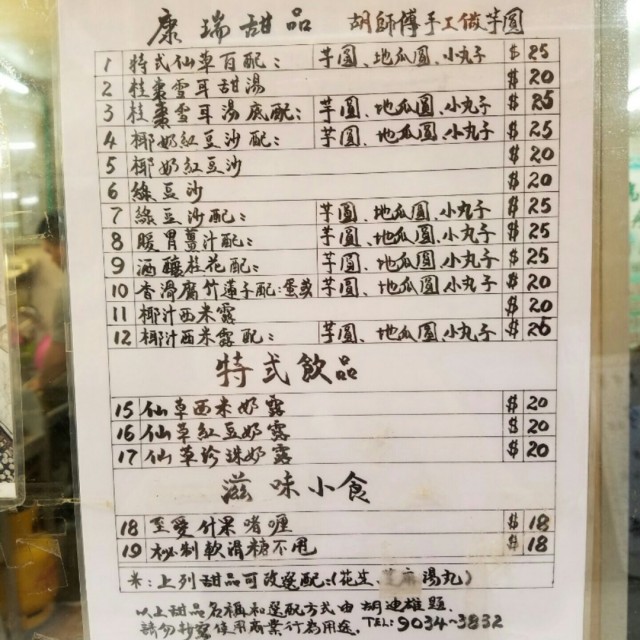 康瑞甜品 胡師傅手工做芋圓
1 特式仙草百配： 芋圓、地瓜圓、小丸子 $ 25
2 桂棗雪耳甜湯 $ 20
3 桂棗雪耳湯底配： 芋圓、地瓜圓、小丸子 $ 25
4 椰奶紅豆沙配： 芋圓、地瓜圓、小丸子 $ 25
5 椰奶紅豆沙 $ 20
6 綠豆沙 $ 20
7 綠豆沙配： 芋圓、地瓜圓、小丸子 $ 25
8 暖胃薑汁配： 芋圓、地瓜圓、小丸子 $ 25
9 酒釀桂花配： 芋圓、地瓜圓、小丸子 $ 25
10 香滑腐竹蓮子配：蛋或 芋圓、地瓜圓、小丸子 $ 20
11 椰汁西米露 $ 20
12 椰汁西米露配： 芋圓、地瓜圓、小丸子 $ 26
特式飲品
15 仙草西米奶露 $ 20
16 仙草紅豆奶露 $ 20
17 仙草珍珠奶露 $ 20
滋味小食
18 至愛什果啫喱 $ 18
19 秘制軟滑糖不甩 $ 18
*：上列甜品可改選配：(花生、芝麻湯丸)
以上甜品名稱和選配方式由 胡迪雄 題.
請勿抄寫使用商業行為用途. TEL: 9034-3832